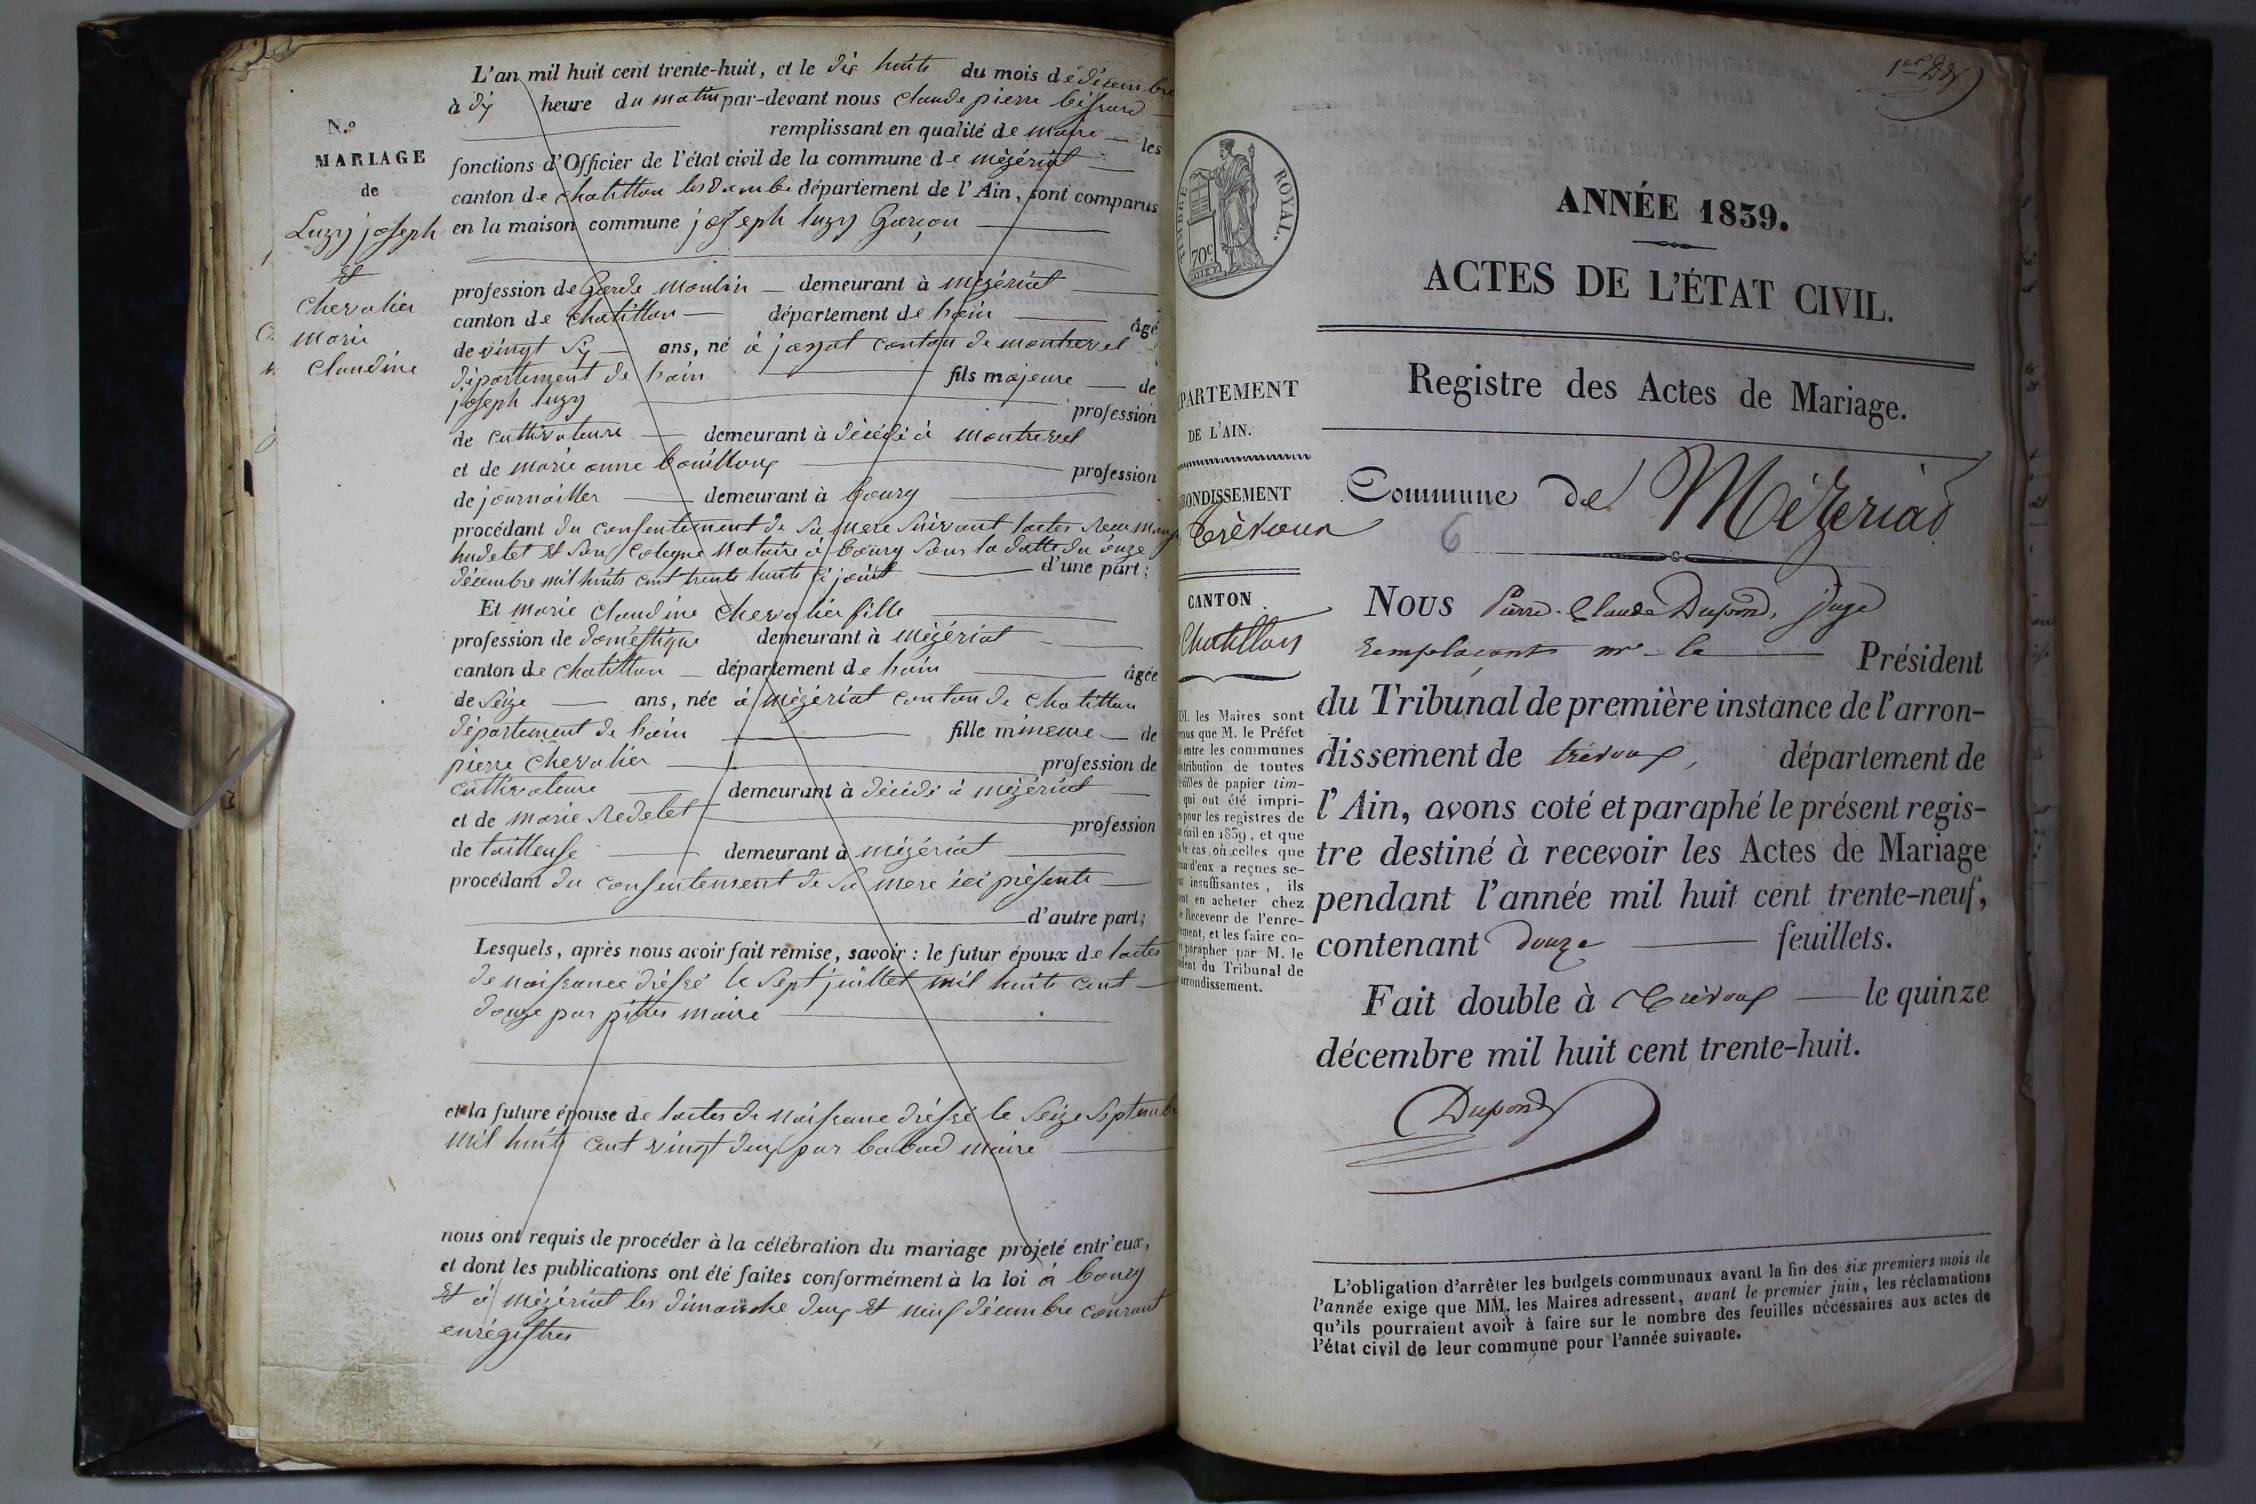 N.º
MARIAGE
de
Luzy joseph
Et
Chevalier
Marie
Claudine
L'an mil huit cent trente-huit, et le dix huits du mois de décembre
à dix heure du matin par-devant nous Claude pierre
remplissant en qualité de maire les
fonctions d'Officier de l'état civil de la commune de mézériat
canton de chatillon les dombe département de l'Ain, sont comparus
en la maison commune joseph luzy Garçon
profession de Garde moulin demeurant à mézériat
canton de Chatillon département de hain âgé
de vingt six ans, né à jayat canton de montrevel
département de hain fils majeure de
joseph luzy profession
de cultivateure demeurant à décédé à montrevel
et de marie anne bouilloux profession
de journailler demeurant à bourg
procédant du consentement de sa mere suivant lactes recu
hudelet Et son Colegue Notaire à bourg sous la datte du onze
décembre mil huits cent trente huits ci joint d'une part;
Et marie claudine chevalier fille
profession de domestique demeurant à mézériat
canton de chatillon département de hain âgée
de seize ans, née à mézériat canton de chatillon
département de hain fille mineure de
pierre chevalier profession de
cultivateure demeurant à décédé à mézériat
et de marie Redelet profession
de tailleuse demeurant à mézériat
procédant du consentement de sa mere ici présente
d'autre part;
Lesquels, après nous avoir fait remise, savoir : le futur époux de lactes
de naissance dréssé le sept juillet mil huits cent
douze par maire
et la future épouse de lactes de naissance dréssé le seize septembre
mil huits cent vingt deux par babad maire
nous ont requis de procéder à la célébration du mariage projeté entr'eux,
et dont les publications ont été faites conformément à la loi à bourg
Et à mézériat les dimanche deux Et neuf décembre courant
enrégistres
1er
TIMBRE ROYAL.
70c
ANNÉE 1839.
ACTES DE L'ÉTAT CIVIL.
Registre des Actes de Mariage.
DÉPARTEMENT
DE L'AIN.
ARRONDISSEMENT
Trévoux
CANTON
Chatillon
les Maires sont
que M. le Préfet
entre les communes
distribution de toutes
feuilles de papier tim-
qui ont été impri-
pour les registres de
civil en 1839, et que
le cas où celles que
d'eux a reçues se-
insuffisantes, ils
en acheter chez
Receveur de l'enre-
et les faire co-
parapher par M. le
du Tribunal de
arrondissement.
Commune de Mézériat
6
Nous Pierre-Claude Dupond, juge
remplaçant mr le Président
du Tribunal de première instance de l'arron-
dissement de trévoux, département de
l'Ain, avons coté et paraphé le présent regis-
tre destiné à recevoir les Actes de Mariage
pendant l'année mil huit cent trente-neuf,
contenant douze feuillets.
Fait double à Trévoux le quinze
décembre mil huit cent trente-huit.
Dupond
L'obligation d'arrêter les budgets communaux avant la fin des six premiers mois de
l'année exige que MM. les Maires adressent, avant le premier juin, les réclamations
qu'ils pourraient avoir à faire sur le nombre des feuilles nécessaires aux actes de
l'état civil de leur commune pour l'année suivante.